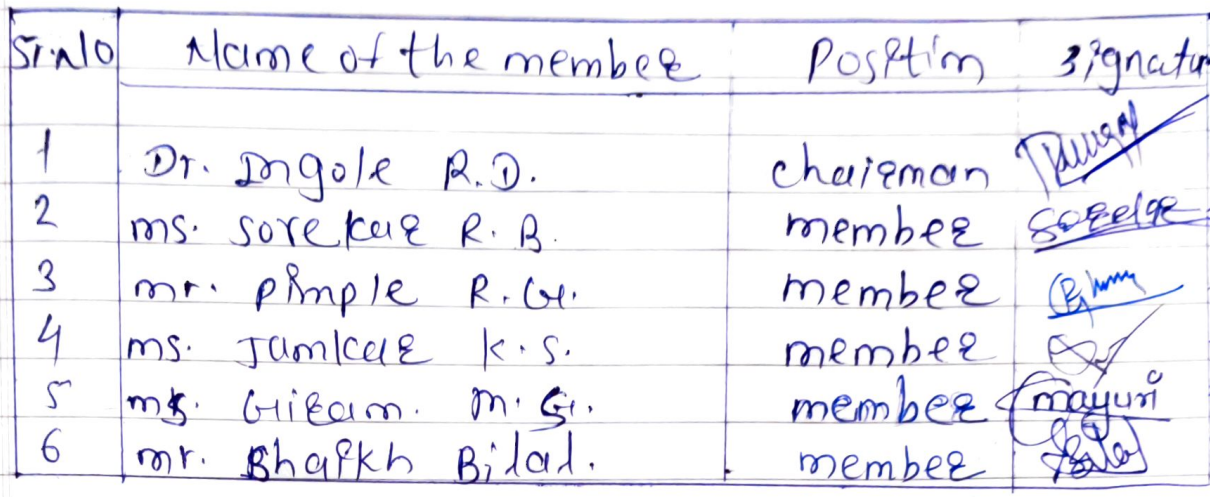 Sr.No Name of the member Position Signatur
1 Dr. Ingole R.D. chairman
2 ms. Sorekar R.B. member Sorekar
3 mr. Pimple R.G. member
4 ms. Jamkar K.S. member
5 ms. Giram. M.G. member mayuri
6 mr. Shaikh Bilal. member